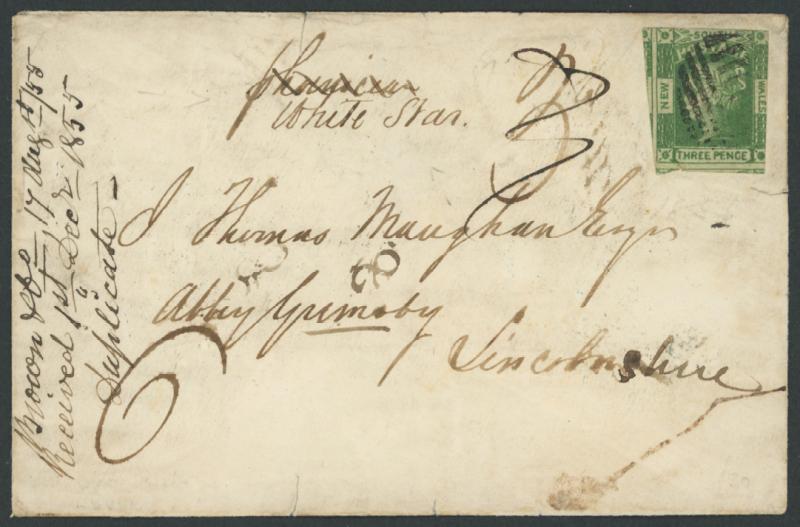 Phoenician
White Star.
3
SOUTH
NEW
WALES
THREE PENCE
J Thomas Maughan Esqr
Abbey Grimsby
Lincolnshire
6
Brown & Co 17 Augst/55
Received 1st Decr 1855
Duplicate